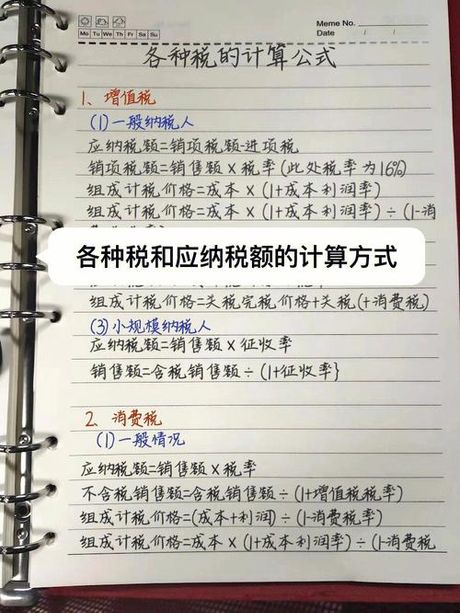 Meme No.
Mo Tu We Th Fr Sa Su
Date / /
各种税的计算公式
1、增值税
(1)一般纳税人
应纳税额=销项税额-进项税
销项税额=销售额×税率(此处税率为16%)
组成计税价格=成本×(1+成本利润率)
组成计税价格=成本×(1+成本利润率)÷(1-消
各种税和应纳税额的计算方式
组成计税价格=关税完税价格+关税(+消费税)
(3)小规模纳税人
应纳税额=销售额×征收率
销售额=含税销售额÷(1+征收率}
2、消费税
(1)一般情况
应纳税额=销售额×税率
不含税销售额=含税销售额÷(1+增值税税率)
组成计税价格=(成本+利润)÷(1-消费税率)
组成计税价格=成本×(1+成本利润率)÷(1-消费税